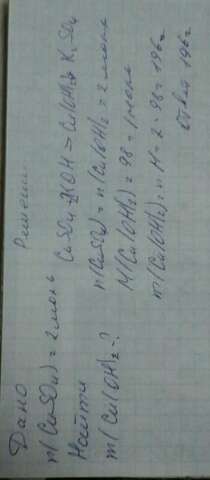 Дано
n(CuSO4) = 2 моль
Найти
m(Cu(OH)2-?
Решение
CuSO4 2KOH = Cu(OH)2 K2SO4
n(CuSO4) = n(Cu(OH)2 = 2 моль
M(Cu(OH)2 = 98 г/моль
m(Cu(OH)2 = n M = 2 · 98 = 196 г
Ответ 196 г